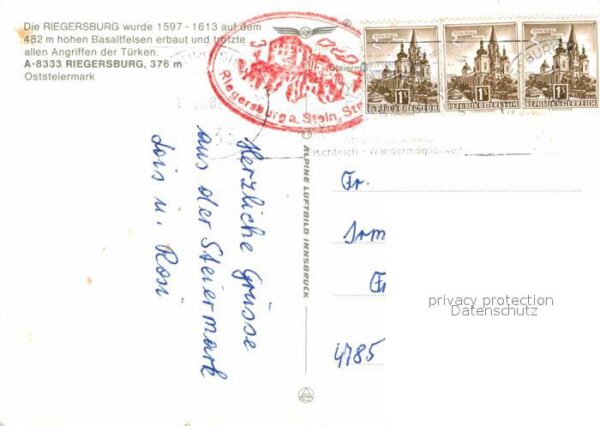 Die RIEGERSBURG wurde 1597 - 1613 auf dem
482 m hohen Basaltfelsen erbaut und trotzte
allen Angriffen der Türken.
A-8333 RIEGERSBURG, 376 m
Oststeiermark
Riegersburg a. Stein, Stm
REPUBLIK ÖSTERREICH
REPUBLIK ÖSTERREICH
REPUBLIK ÖSTERREICH
Fischteich - Wandermöglichkeit
Herzliche Grüsse
aus der Steiermark
Lois u. Rosi
ALPINE LUFTBILD INNSBRUCK
Fr.
4785
privacy protection
Datenschutz